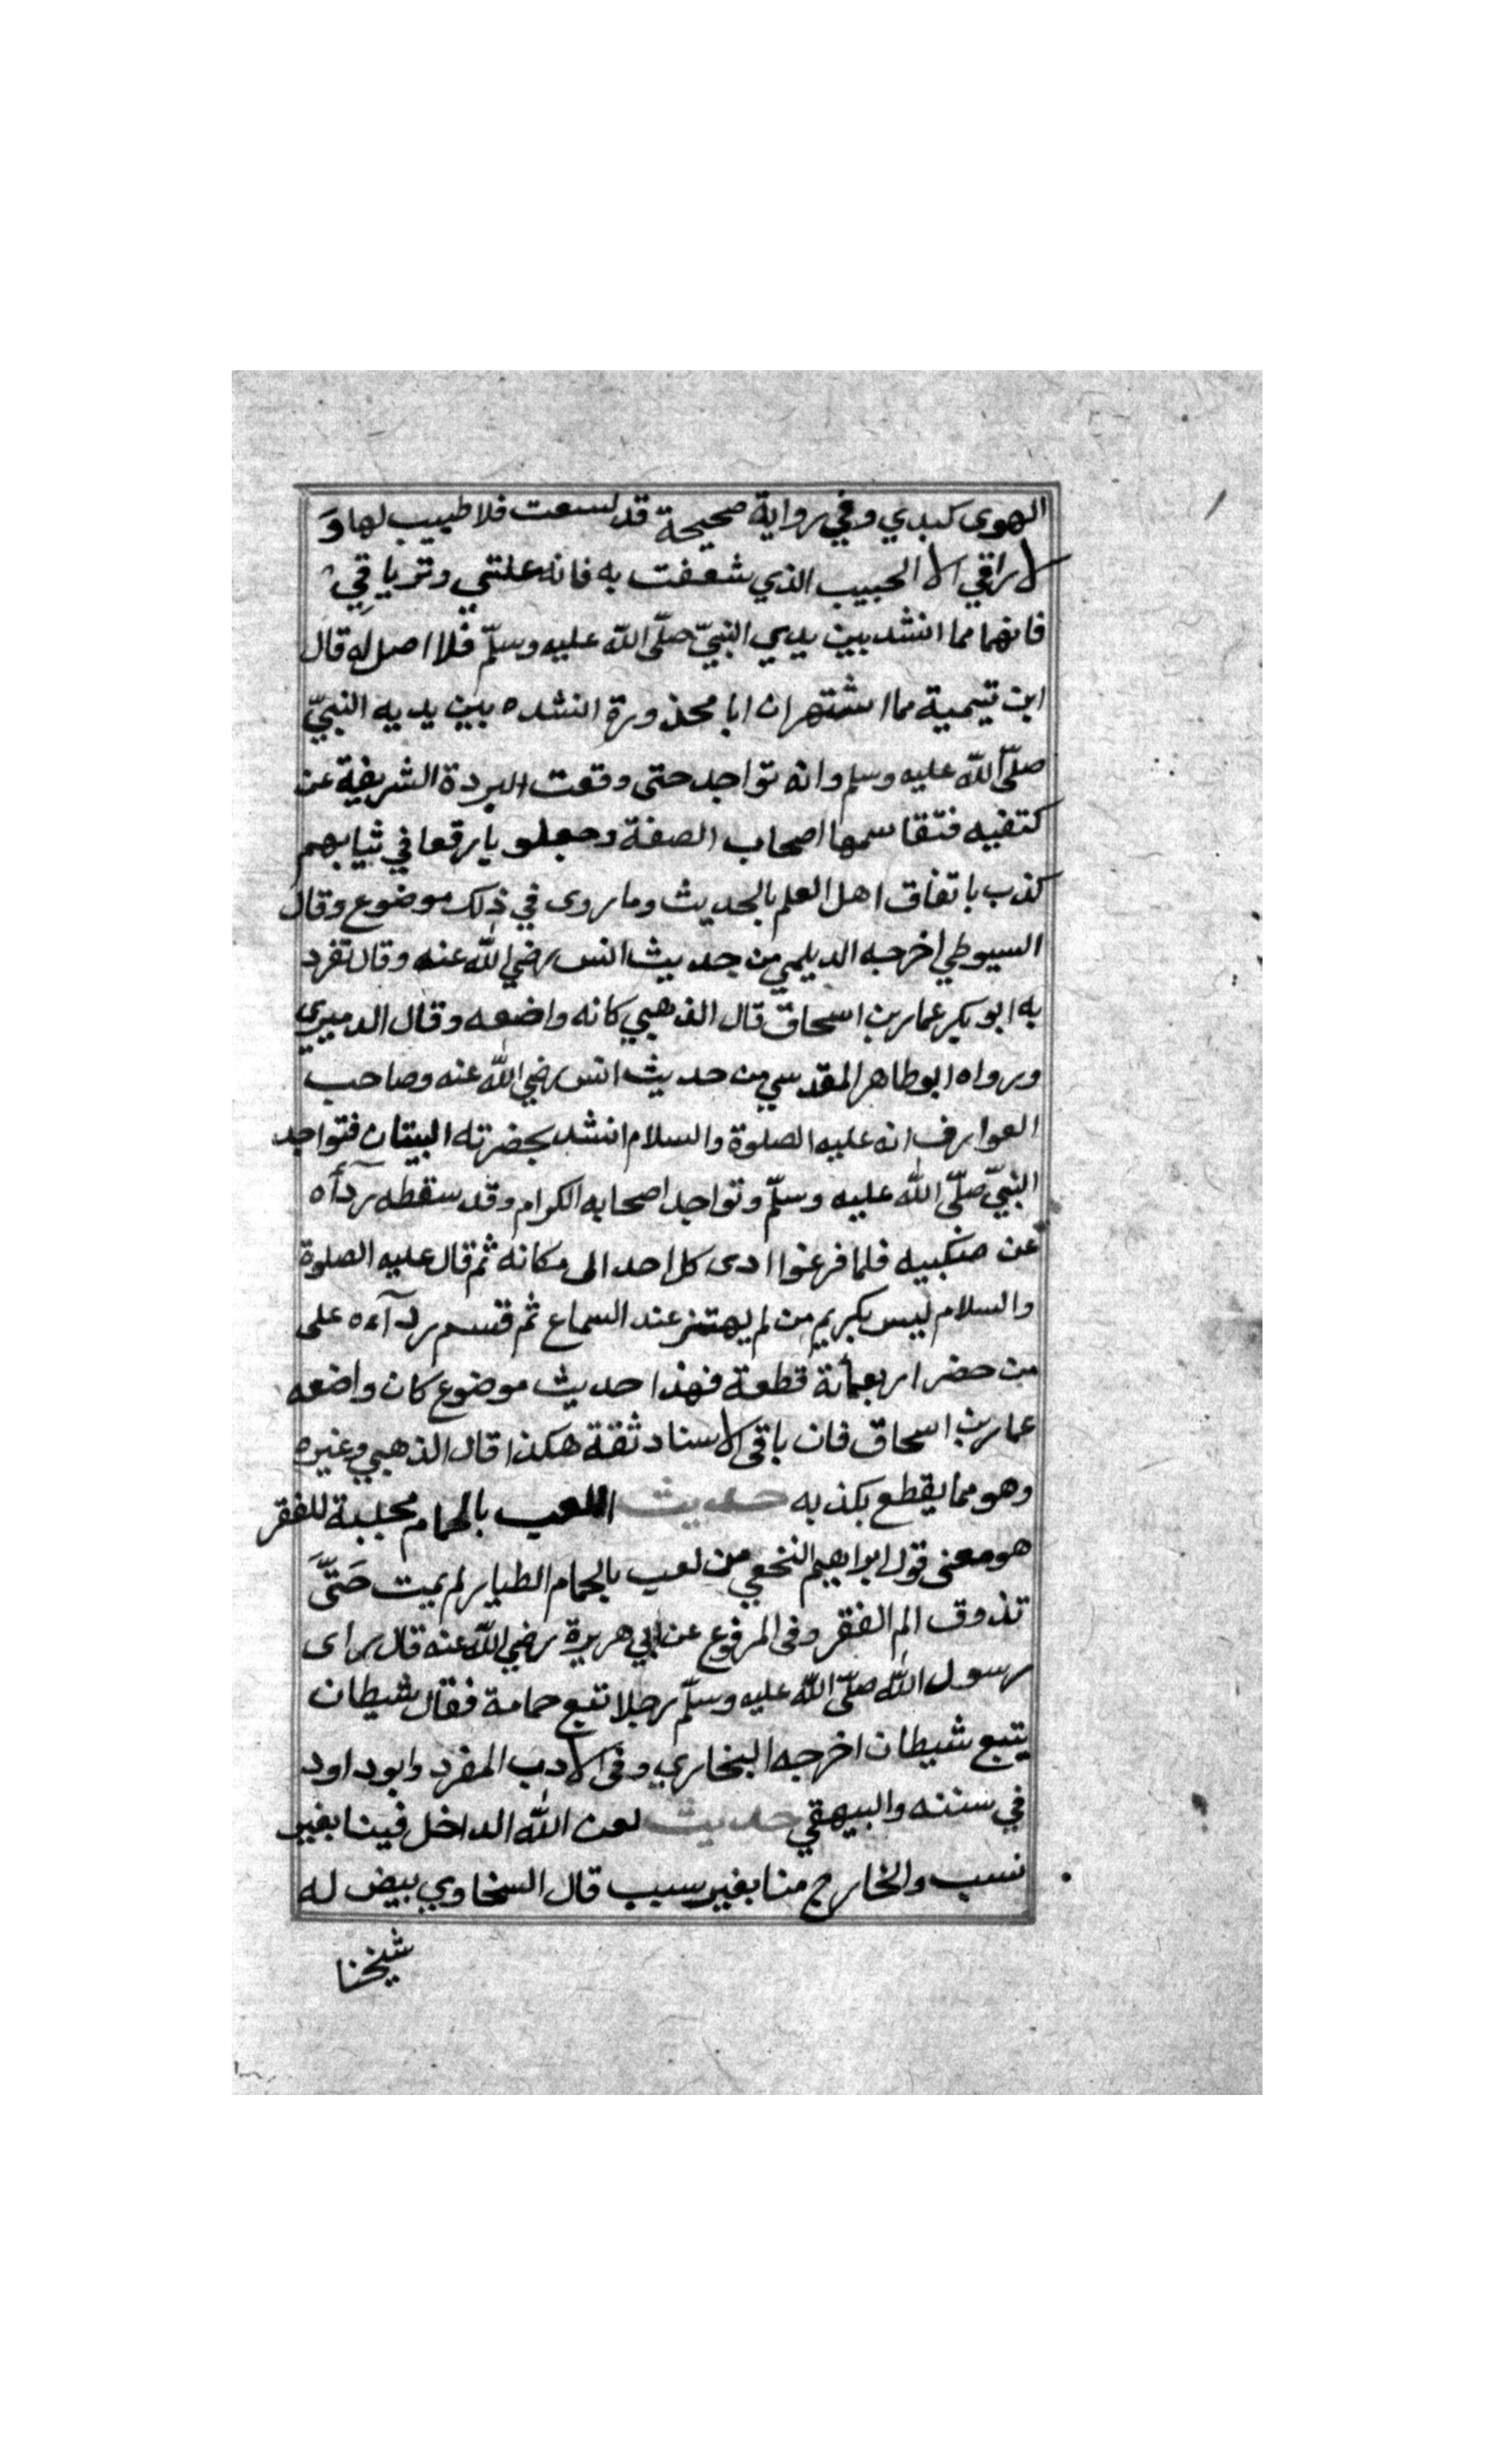 الهوى كبدي وفي رواية صحيحة قد لسعت فلا طبيب لها وَ
لا راقي الا الحبيب الذي شغفت به فانه علتي وترياقي
فانهما مما انشد بين يدي النبيّ صلّى الله عليه وسلّم فلا اصل له قال
ابن تيمية مما اشتهر ان ابا محذورة انشده بين يديه النبيّ
صلّى الله عليه وسلم وانه تواجد حتى وقعت البردة الشريفة عن
كتفيه فتقاسمها اصحاب الصفة وجعلو يا رقعا في ثيابهم
كذب باتفاق اهل العلم بالحديث وما روى في ذلك موضوع وقال
السيوطي اخرجه الديلمي من حديث انس رضي الله عنه وقال تفرد
به ابو بكر عمار بن اسحاق قال الذهبي كانه واضعه وقال الدميري
ورواه ابو طاهر المقدسي من حديث انس رضي الله عنه وصاحب
العوارف انه عليه الصلوة والسلام انشد بحضرته البيتان فتواجد
النبيّ صلّى الله عليه وسلّم وتواجد اصحابه الكرام وقد سقطه ردآأه
عن منكبيه فلما فرغوا ادى كل احد الى مكانه ثم قال عليه الصلوة
والسلام ليس بكريم من لم يهتز عند السماع ثم قسم ردآءه على
من حضر اربعمأئة قطعة فهذا حديث موضوع كان واضعه
عمار بن اسحاق فان باقى الاسناد ثقة هكذا قال الذهبي وغيره
وهو مما يقطع بكذبه حديث اللعب بالحمام مجلبة للفقر
هو معنى قول ابراهيم النخعي من لعب بالحمام الطيار لم يميت حَتَّى
تذوق الم الفقر وفى المرفوع عن ابي هريرة رضي الله عنه قال راى
رسول الله صلّى الله عليه وسلّم رجلا تتبع حمامة فقال شيطان
يتبع شيطان اخرجه البخاري وفى الادب المفرد وابوداود
في سننه والبيهقي حديث لعن الله الداخل فينا بغير
نسب والخارج منا بغير سبب قال السخاوي بيض له
شيخنا